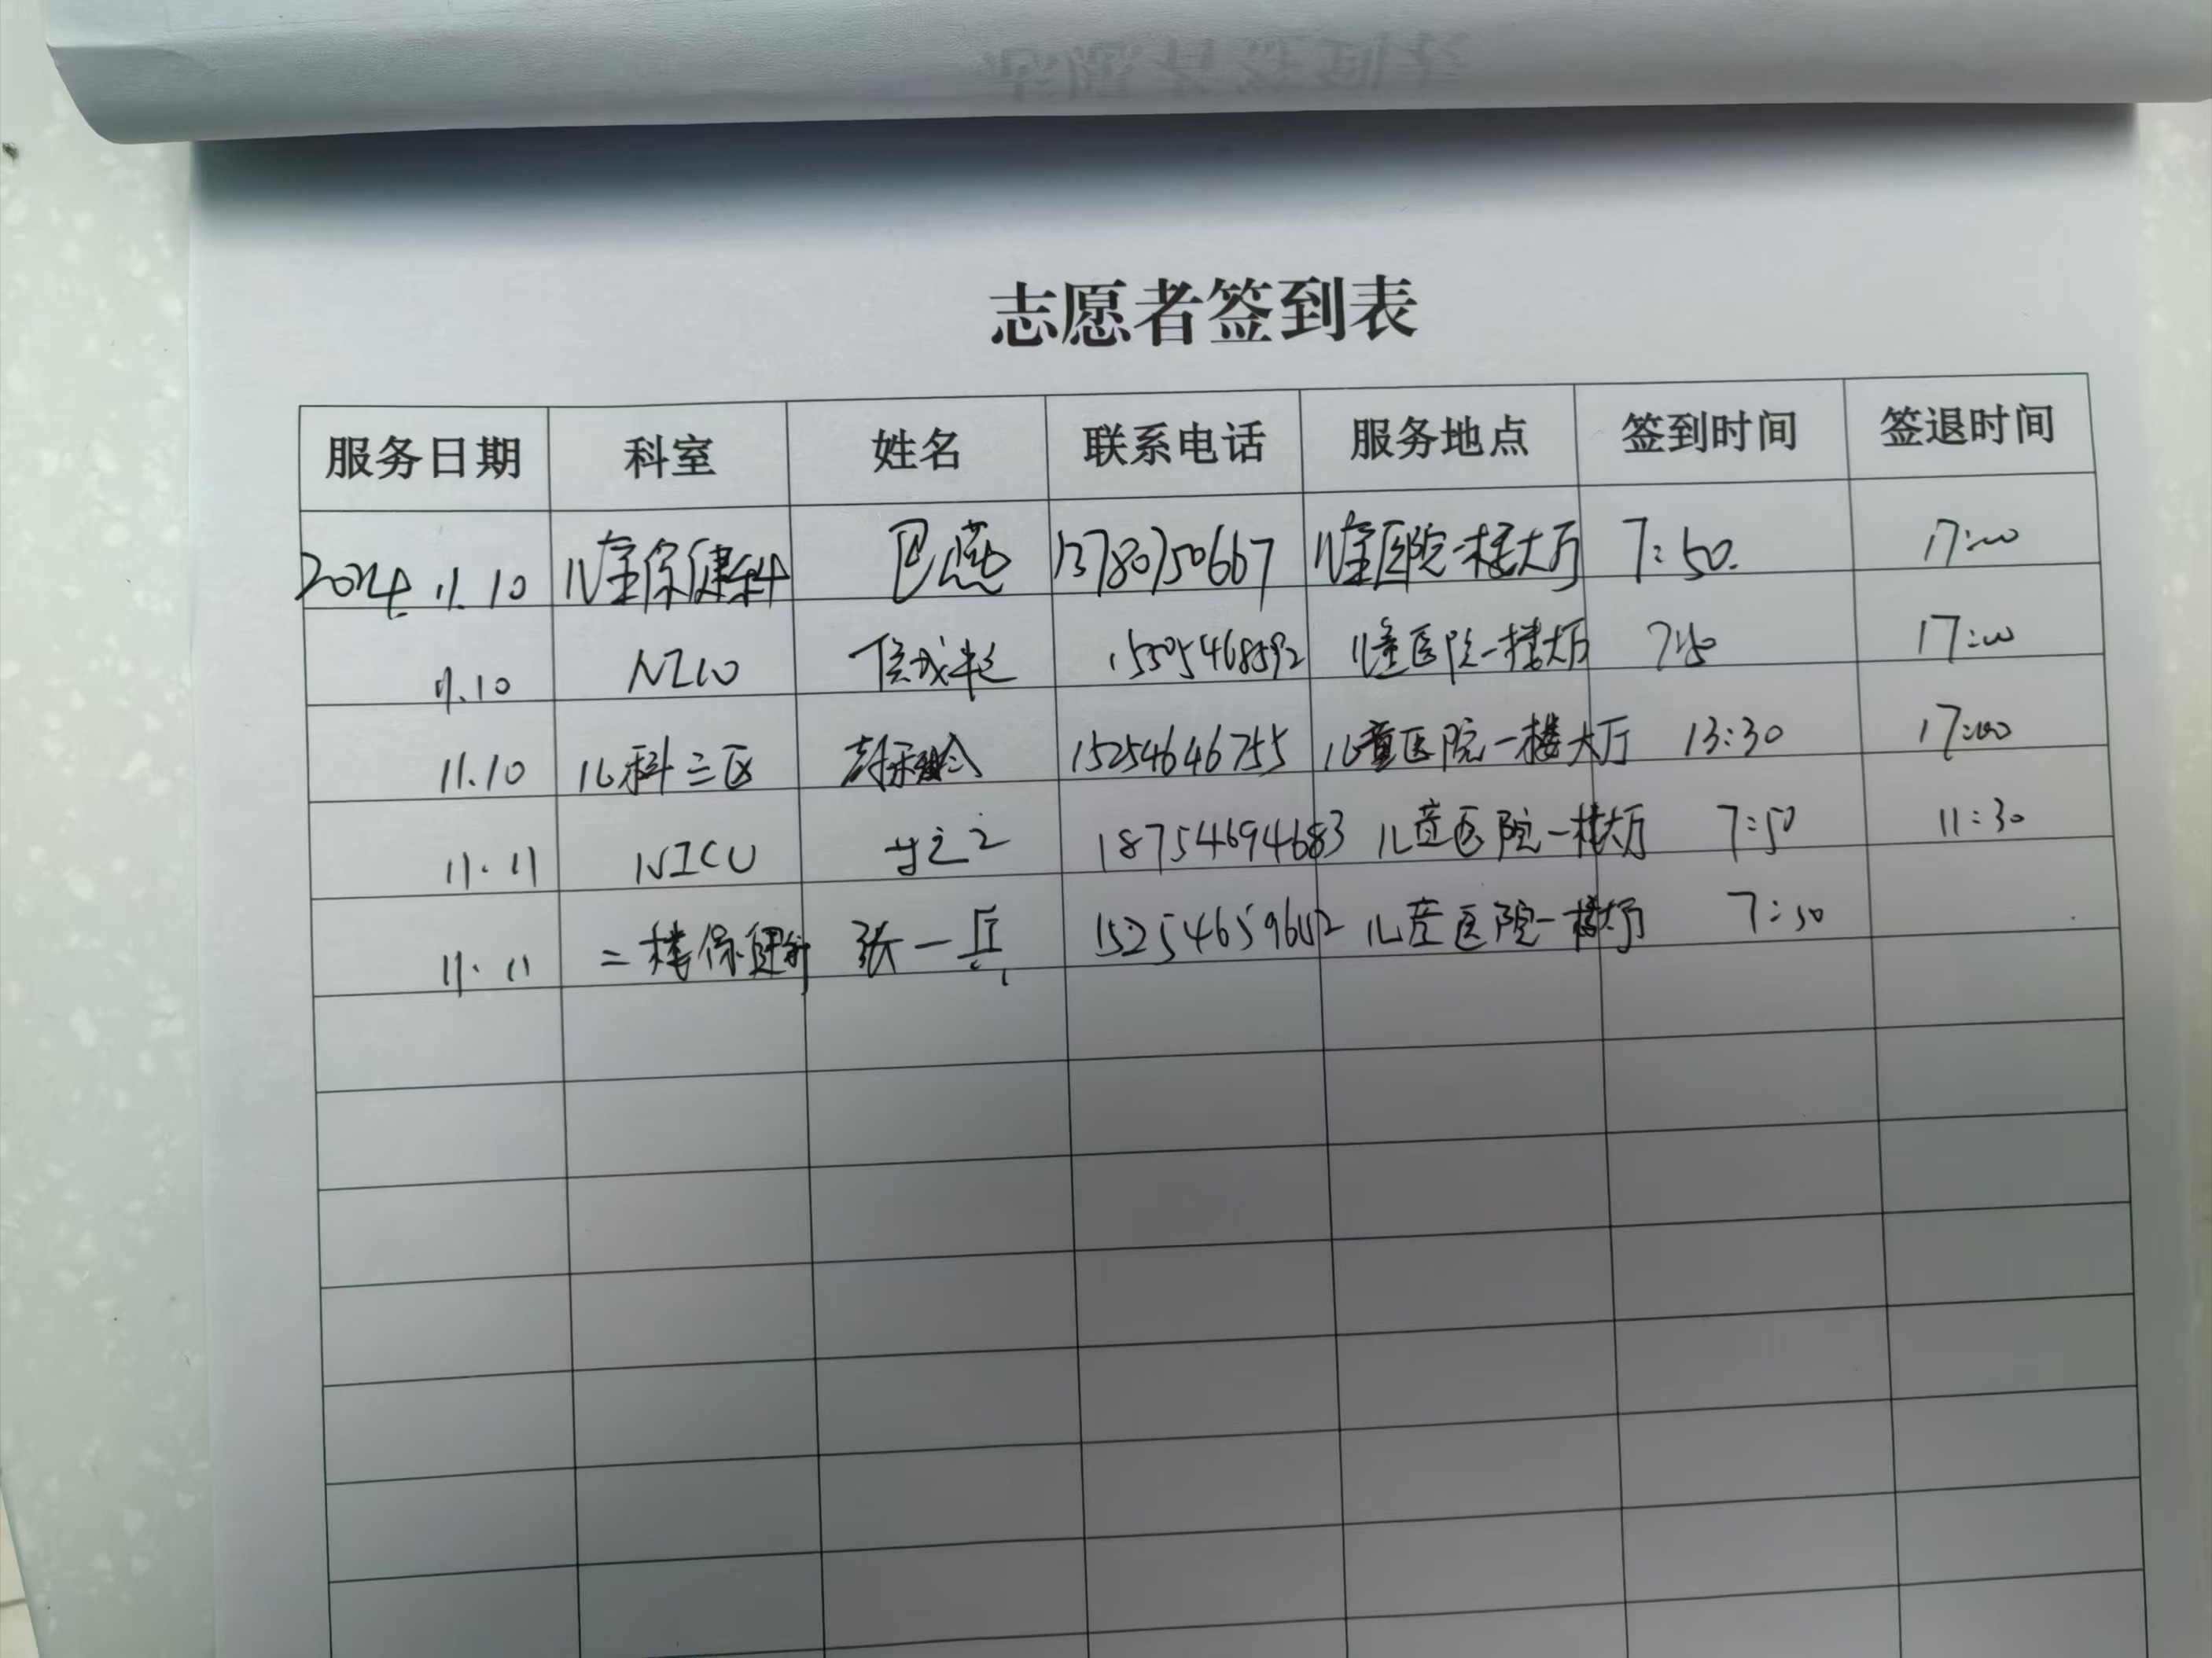 志愿者签到表
服务日期 科室 姓名 联系电话 服务地点 签到时间 签退时间
2024.11.10 儿童保健科 巴燕 13780750667 儿童医院一楼大厅 7:50. 17:00
11.10 NICU 15505468592 儿童医院一楼大厅 7:50 17:00
11.10 儿科三区 15254646755 儿童医院一楼大厅 13:30 17:00
11.11 NICU 18754694683 儿童医院一楼大厅 7:50 11:30
11.11 二楼保健科 张一兵 儿童医院一楼大厅 7:50